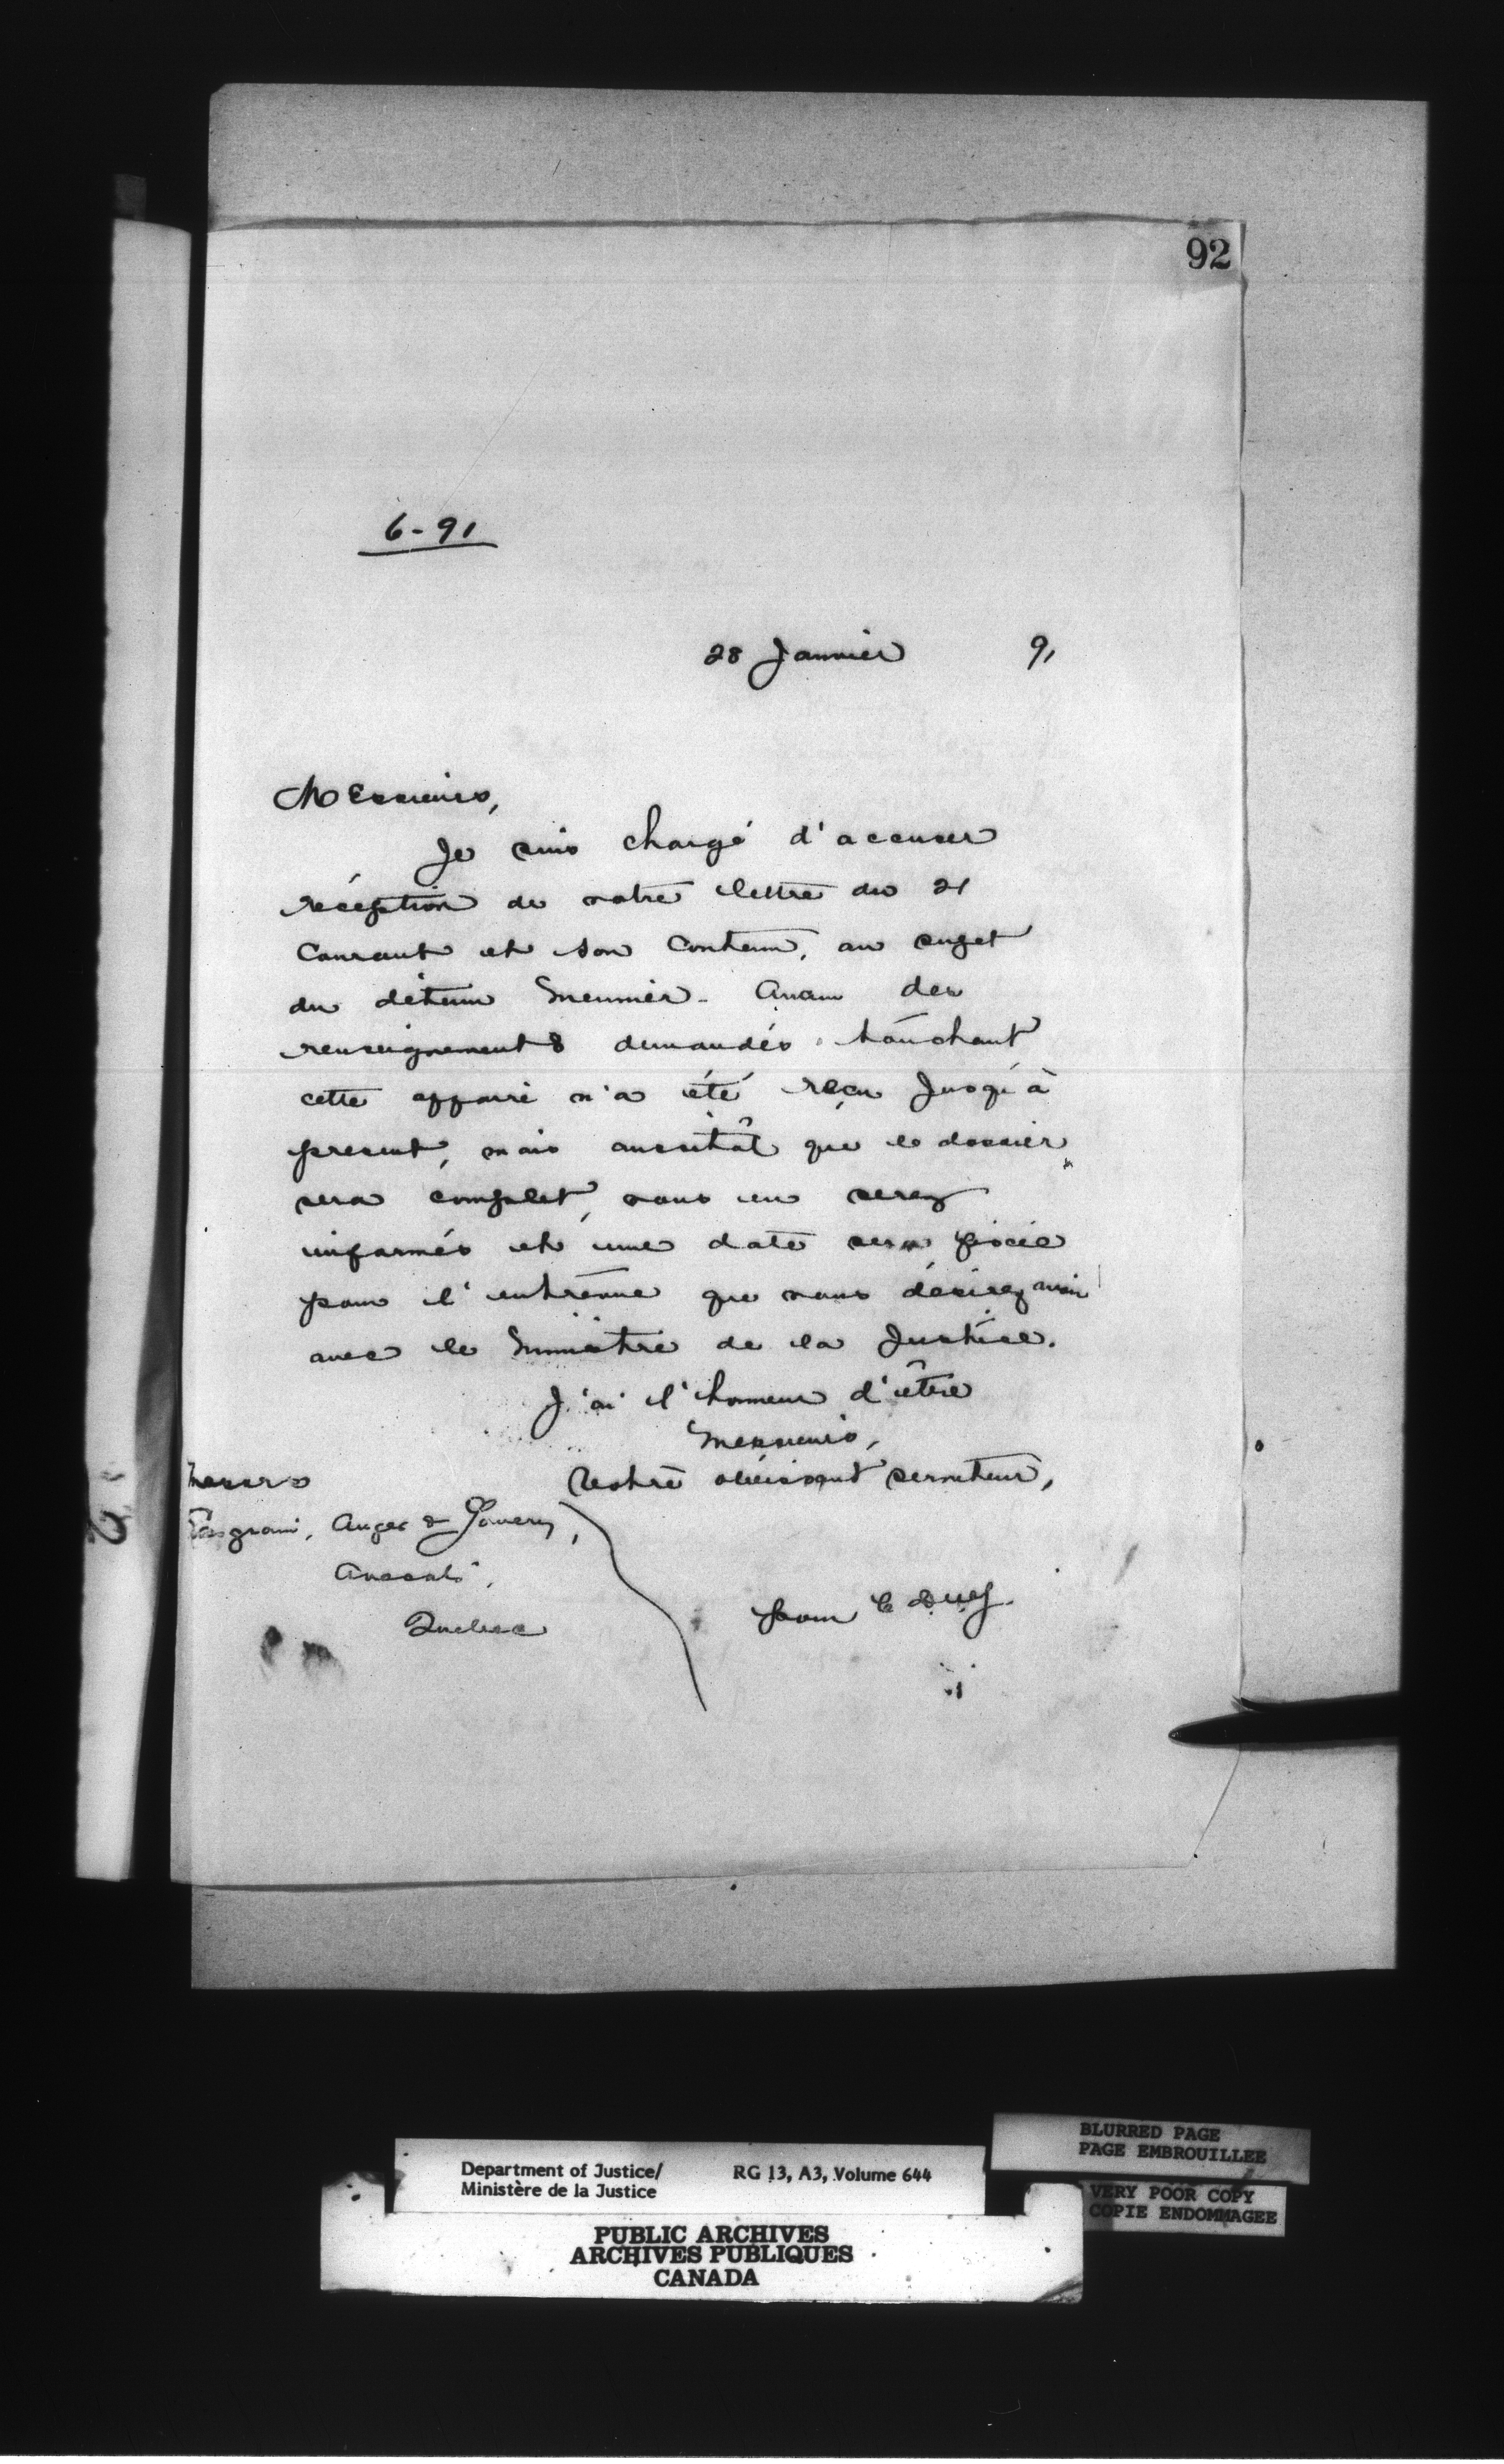 92
6-91
28 Janvier 91
Messieurs,
Je suis chargé d'accuser
réception de votre lettre du 21
Courant et son Contenu, au sujet
du détenu Meunier. Aucun des
renseignements demandés touchant
cette affaire n'a été reçu Jusqu'à
present, mais aussitôt que le dossier
sera complet, vous en serez
informés et une date sera fixée
pour l'entrevue que vous désirez avoir
avec le Ministre de la Justice.
J'ai l'honneur d'être
Messieurs,
Votre obéissant serviteur,
Messrs
Casgrain, Angers &
Avocats,
Quebec
pour le
Department of Justice/ RG 13, A3, Volume 644
Ministère de la Justice
PUBLIC ARCHIVES
ARCHIVES PUBLIQUES
CANADA
BLURRED PAGE
PAGE EMBROUILLEE
VERY POOR COPY
COPIE ENDOMMAGEE